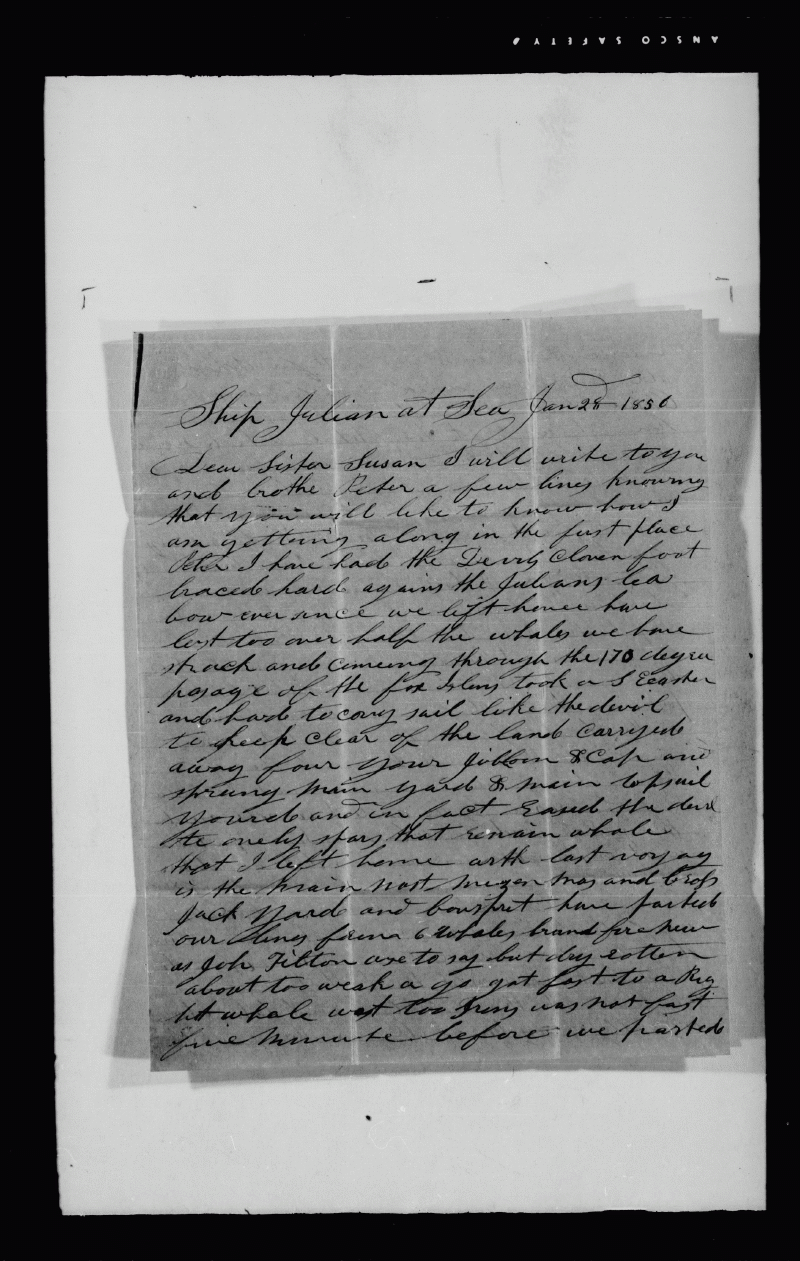 ANSCO SAFETY
Ship Julian at Sea Jan 28th 1850
Dear Sister Susan I will write to you
and brothe Peter a few lines knowing
that you will like to know how I
am getting along in the furst place
Peter I have had the Devels Cloven foot
braced hard agains the Julians lea
bow ever since we left home have
lost too over half the whales we have
struck and comeing through the 170 degree
pasage of the fox Islens took a S Easter
and had to cary sail like the devil
to keep clear of the land carryed
away four your Jibbom & Cap and
sprung main yard & main topsail
yard and in fact Eased the devil
the onely spars that remain whole
that I left home with last voyag
is the main mast mezen mas and Cross
Jack yard and bowsprit have parted
our lines from 6 whales brand fire new
as Joh Tilton use to say but dry rotten
about too weak a go got fast to a Rig
ht whale wast too Irons was not fast
five minute before we parted